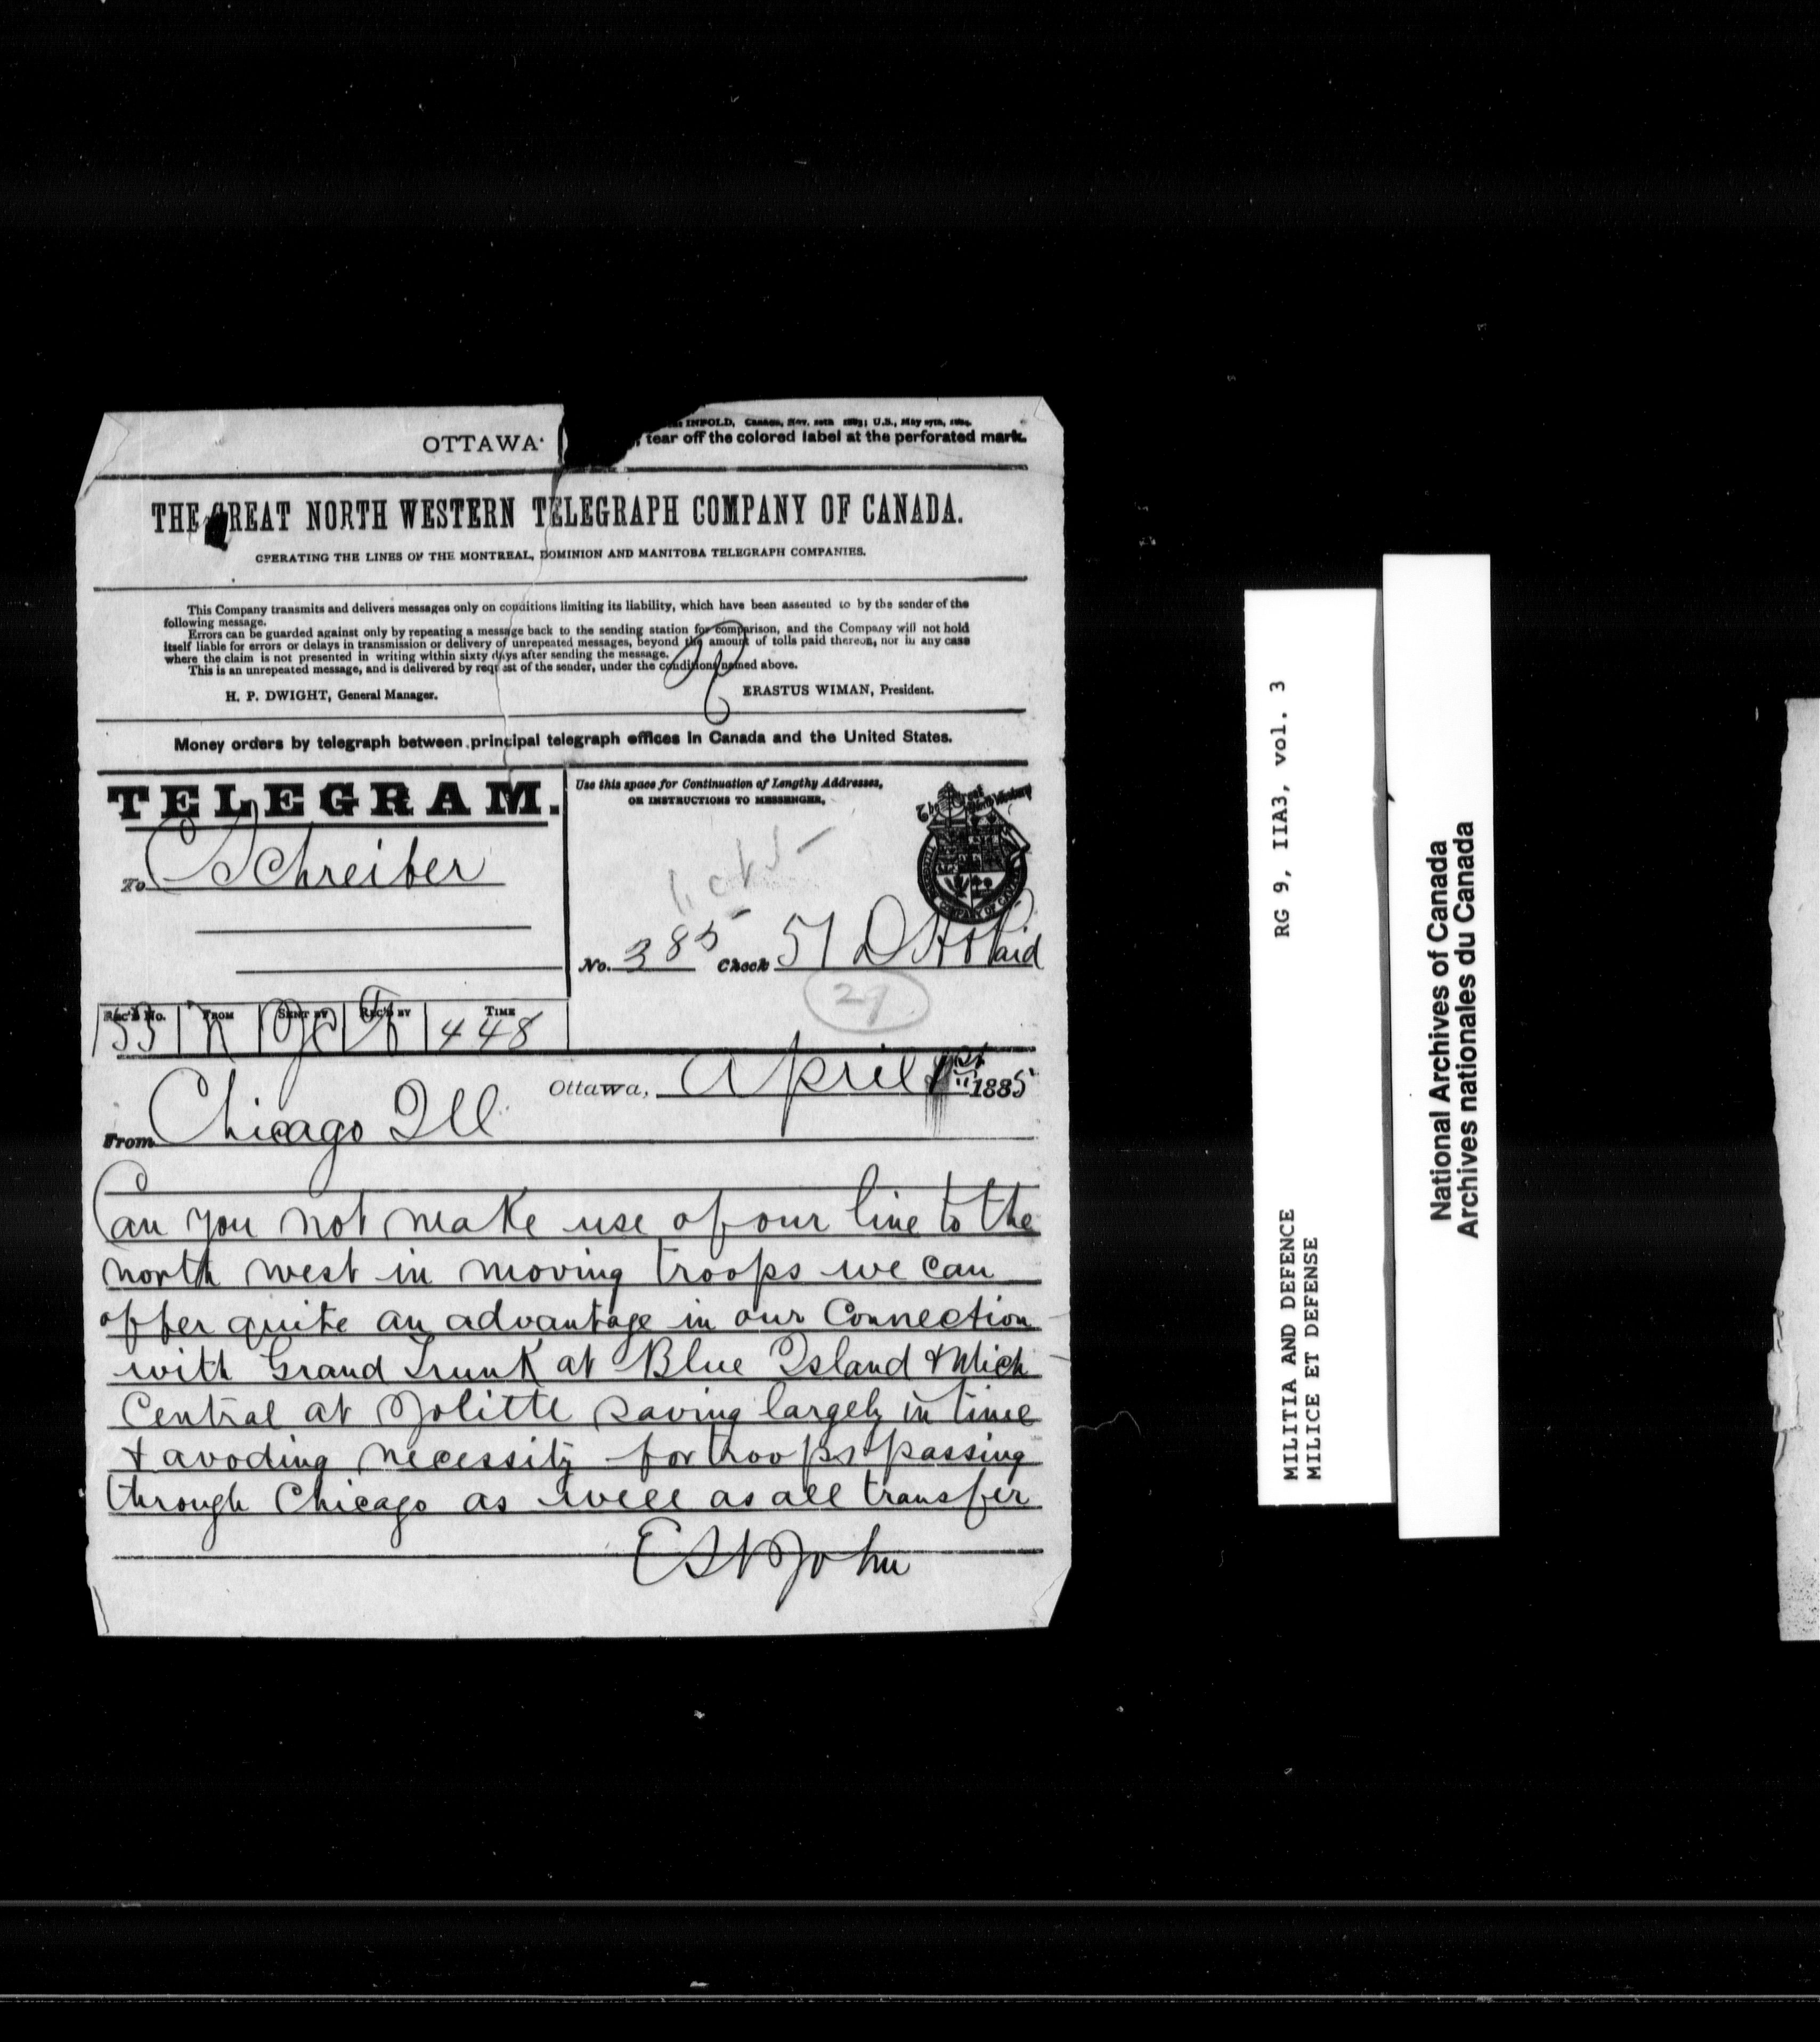 OTTAWA
INFOLD, Canada, Nov. 20th 1883; U.S., May 27th, 1884.
, tear off the colored label at the perforated mark.
THE GREAT NORTH WESTERN TELEGRAPH COMPANY OF CANADA.
OPERATING THE LINES OF THE MONTREAL, DOMINION AND MANITOBA TELEGRAPH COMPANIES.
This Company transmits and delivers messages only on conditions limiting its liability, which have been assented to by the sender of the
following message.
Errors can be guarded against only by repeating a message back to the sending station for comparison, and the Company will not hold
itself liable for errors or delays in transmission or delivery of unrepeated messages, beyond the amount of tolls paid thereon, nor in any case
where the claim is not presented in writing within sixty days after sending the message.
This is an unrepeated message, and is delivered by request of the sender, under the conditions named above.
H. P. DWIGHT, General Manager.
ERASTUS WIMAN, President.
Money orders by telegraph between principal telegraph offices in Canada and the United States.
TELEGRAM.
Use this space for Continuation of Lengthy Addresses,
OR INSTRUCTIONS TO MESSENGER.
To C Schreiber
No. 385 Check 51 DH Paid
29
REC'D No. FROM SENT BY REC'D BY TIME
448
Ottawa, April 1st 1885
From Chicago Ill
Can you not make use of our line to the
north west in moving troops we can
offer quite an advantage in our Connection
with Grand Trunk at Blue Island & Mich
Central at Jolitte saving largely in time
& avoding necessity for troops passing
through Chicago as well as all transfer
E St John
RG 9, IIA3, vol. 3
MILITIA AND DEFENCE
MILICE ET DEFENSE
National Archives of Canada
Archives nationales du Canada